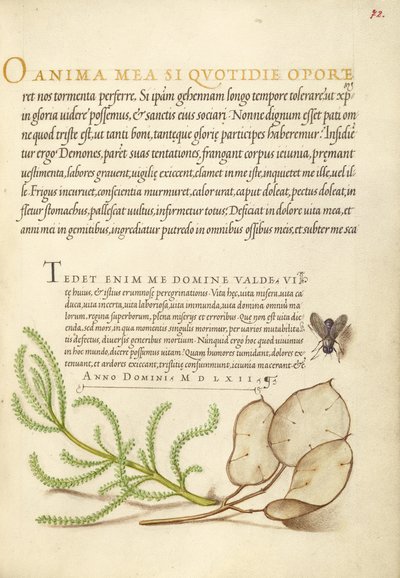 72.
O ANIMA MEA SI QVOTIDIE OPORE
ret nos tormenta perferre, Si ipām gehennam longo tempore tolerare, ut xp̄
in gloria uidere possemus, & sanctis eius sociari: Nonne dignum esset pati om
ne quod triste est, ut tanti boni, tantæque gloriæ participes haberemur? Insidiē
tur ergo Demones, paret suas tentationes, frangant corpus ieiunia, premant
uestimenta, labores grauent, uigiliæ exiccent, clamet in me iste, inquietet me ille, uel il
le. Frigus incuruet, conscientia murmuret, calor urat, caput doleat, pectus doleat, in
fletur stomachus, pallescat uultus, infirmetur totus; Deficiat in dolore uita mea, et
anni mei in gemitibus, ingrediatur putredo in omnibus ossibus meis, et subter me sca
TEDET ENIM ME DOMINE VALDE VI
tæ huius, & istius erumnosæ peregrinationis. Vita hęc, uita misera, uita ca
duca, uita incerta, uita laboriosa, uita immunda, uita domina omniū ma
lorum, regina superborum, plena miseriis et erroribus. Quæ non est uita dic
enda, sed mors, in qua momentis singulis morimur, per uarios mutabilita
tis defectus, diuersis generibus mortium. Nunquid ergo hoc quod uiuimus
in hoc mundo, dicere possumus uitam? Quam humores tumidant, dolores ex
tenuant, et ardores exiccant, tristitiæ consummunt, ieiunia macerant &c
ANNO DOMINI M D LXII